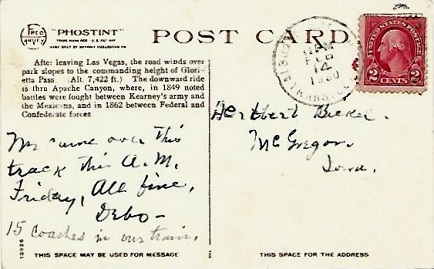 "PHOSTINT"
POST CARD
After leaving Las Vegas, the road winds over
park slopes to the commanding height of Glori-
etta Pass (Alt. 7,422 ft.) The downward ride
is thru Apache Canyon, where, in 1849 noted
battles were fought between Kearney's army and
the Mexicans, and in 1862 between Federal and
Confederate forces
We came over this
track this A.M.
Friday, All fine,
Debo-
15 coaches in our train,
Herbert
McGregor,
Iowa.
FEB
14
1930
UNITED STATES POSTAGE
2 CENTS 2
THIS SPACE MAY BE USED FOR MESSAGE
THIS SPACE FOR THE ADDRESS